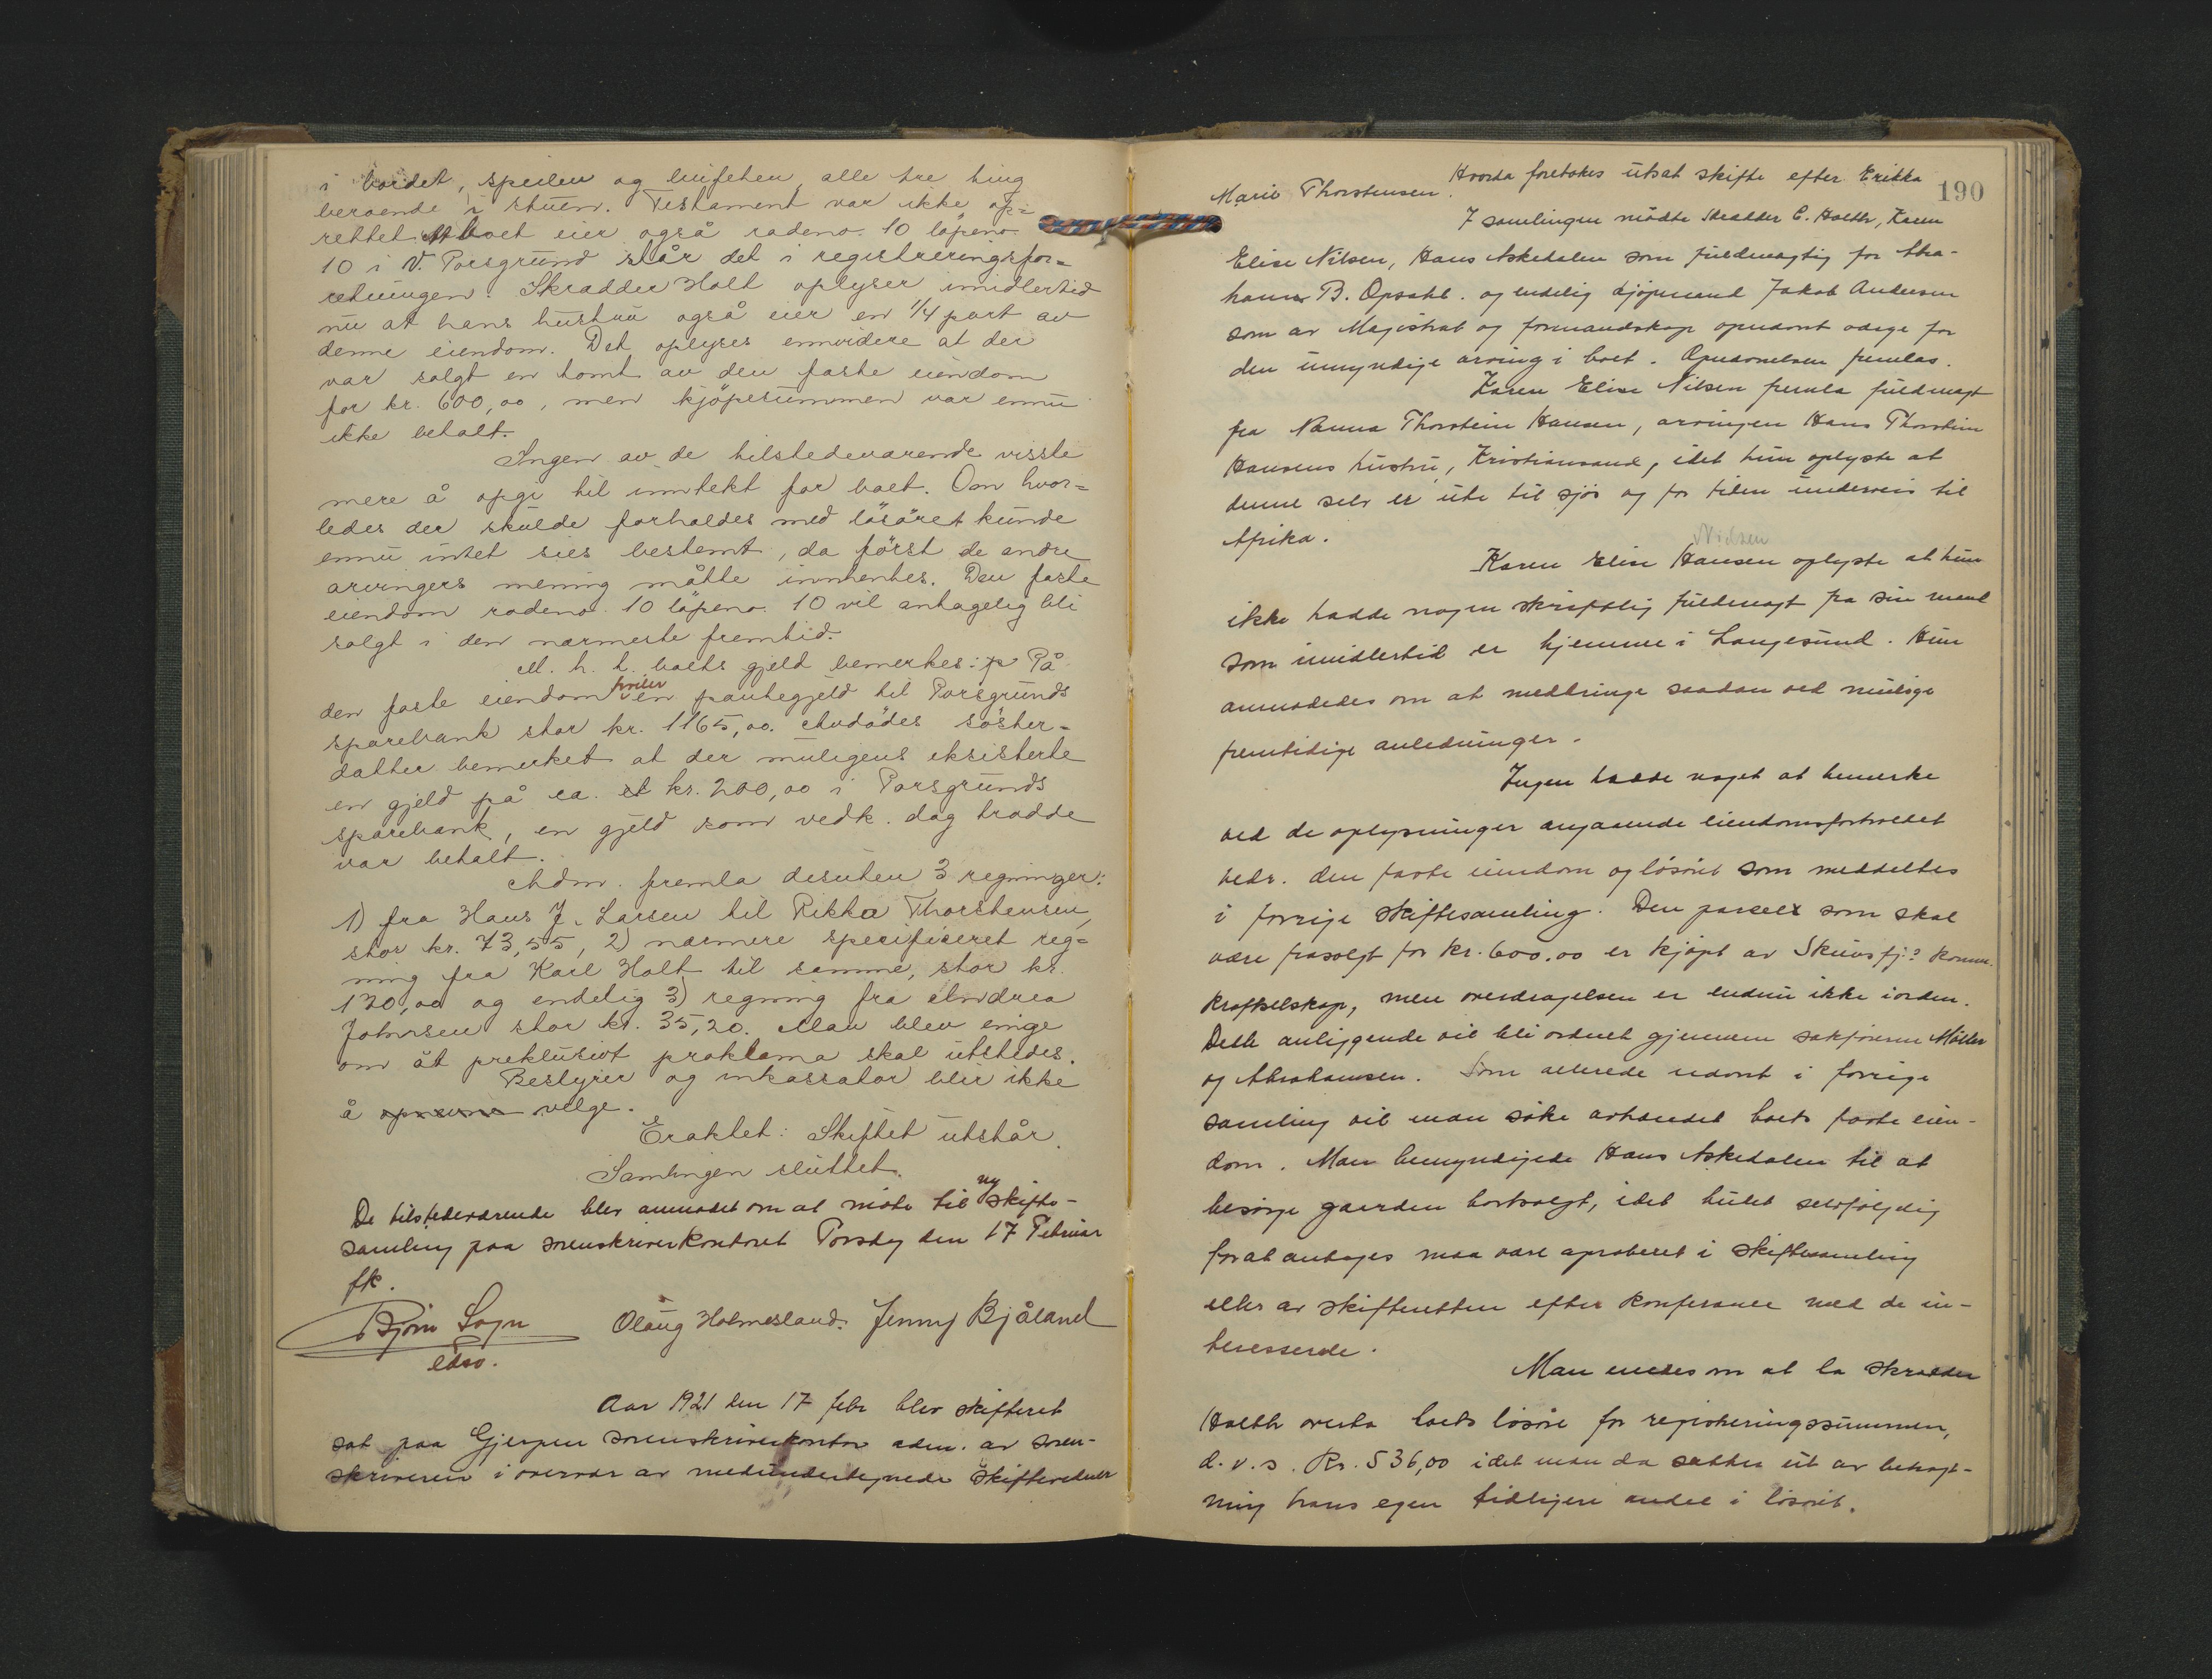 i bordet, speilen og buffeten, alle tre ting
beroende i stuen. Testament var ikke op-
rettet. At boet eier også rodeno. 10 löpeno.
10 i V. Porsgrund står det i registreringsfor-
retningen. Skrædder Holt oplyser imidlertid
nu at hans hustru også eier en 1/4 part av
denne eiendom. Det oplyses ennvidere at der
var solgt en tomt av den faste eiendom
for kr. 600,00, men kjöpesummen var ennu
ikke betalt.
Ingen av de tilstedeværende visste
mere å opgi til inntekt for boet. Om hvor-
ledes der skulde forholdes med lösöret kunde
ennu intet sies bestemt, da först de andre
arvingers mening måtte innhentes. Den faste
eiendom rodeno. 10 löpeno. 10 vil antagelig bli
solgt i den nærmeste fremtid.
M. h. t. boets gjeld bemerkes: På
den faste eiendom hviler en pantegjeld til Porsgrunds
sparebank stor kr. 1165,00. Avdödes söster-
datter bemerket at der muligens eksisterte
en gjeld på ca. kr. 200,00 i Porsgrunds
sparebank, en gjeld som vedk. dog trodde
var betalt.
Adm. fremla desuten 3 regninger:
1) fra Hans J. Larsen til Rikka Thorstensen,
stor kr. 73,55, 2) nærmere spesifiseret reg-
ning fra Karl Holt til samme, stor kr.
130,00 og endelig 3) regning fra Andrea
Johnsen stor kr. 35,20. Man blev enige
om åt preklusivt proklama skal utstedes.
Bestyrer og inkassator blir ikke
å opnevne velge.
Eraktet: Skiftet utstår.
Samlingen sluttet.
De tilstedeværende blev anmodet om at møte til ny skifte-
samling paa sorenskriverkontoret Torsdag den 17 Februar
fk.
Bjørn Sogn Olaug Holmesland. Jenny Bjåland
edsv.
Aar 1921 den 17 febr blev skifteret
sat paa Gjerpen sorenskriverkontor adm. av soren-
skriveren i overvær av medundertegnede skiftevidner
190
Hvorda foretokes utsat skifte efter Erikka
Marie Thorstensen.
I samlingen mødte Skrædder C. Holth, Karen
Elise Nilsen, Hans Askedalen som fuldmægtig for Abra-
ham B. Opsahl. og endelig kjøpmand Jakob Andersen
som av Magistrat og formandskap opnævnt verge for
den umyndige arving i boet. Opnævnelsen fremlas.
Karen Elise Nilsen fremla fuldmagt
fra Nanna Thorstein Hansen, arvingen Hans Thorstein
Hansens hustru, Kristiansand, idet hun oplyste at
denne selv er ute til sjøs og for tiden underveis til
Afrika.
Nielsen
Karen Elise Hansen oplyste at hun
ikke hadde nogen skriftlig fuldmagt fra sin mand
som imidlertid er hjemme i Langesund. Hun
anmodedes om at medbringe saadan ved mulige
fremtidige anledninger.
Ingen hadde noget at bemerke
ved de oplysninger angaaende eiendomsforholdet
vedr. den faste eiendom og løsøret som meddeltes
i forrige skiftesamling. Den parcel som skal
være frasolgt for kr. 600.00 er kjøpt av Skiensfj.? komm.
kraftselskap, men overdragelsen er endnu ikke iorden.
Dette anliggende vil bli ordnet gjennem sakførerne Møller
og Abrahamsen. Som allerede nævnt i forrige
samling vil man søke avhændet boets faste eien-
dom. Man bemyndigede Hans Askedalen til at
besørge gaarden bortsolgt, idet budet selvfølgelig
forat antages maa være aproberet i skiftesamling
eller av skifteretten efter konferance med de in-
teresserede.
Man enedes om at la skrædder
Holth overta boets løsøre for registreringssummen,
d.v.s. Kr. 536,00 idet man da sætter ut av betragt-
ning hans egen tidligere andel i løsøret.